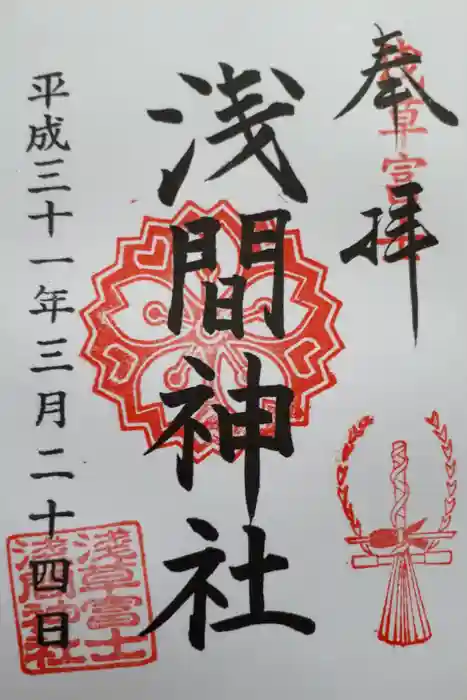 奉拝
浅間神社
平成三十一年三月二十四日
浅草富士
浅間神社